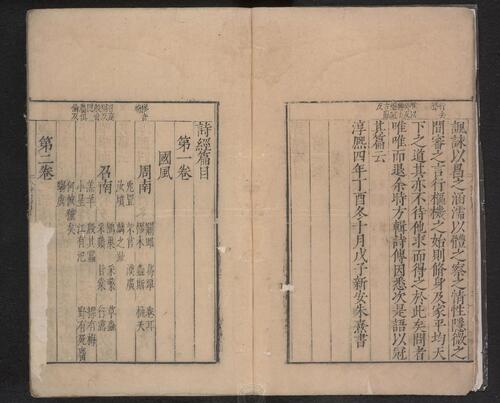 諷詠以昌之涵濡以體之察之情性隱微之
間審之言行樞機之始則脩身及家平均天
下之道其亦不待他求而得之於此矣問者
唯唯而退余時方輯詩傳因悉次是語以冠
其篇云
淳熈四年丁酉冬十月戊子新安朱熹書
詩經篇目
第一卷
國風
周南
關雎 葛覃 卷耳
樛木 螽斯 桃夭
兎罝 芣苢 漢廣
汝墳 麟之趾
召南
鵲巢 采蘩 草蟲
采蘋 甘棠 行露
羔羊 殷其靁 摽有梅
小星 江有汜 野有死麕
何彼穠矣
騶虞
第二卷